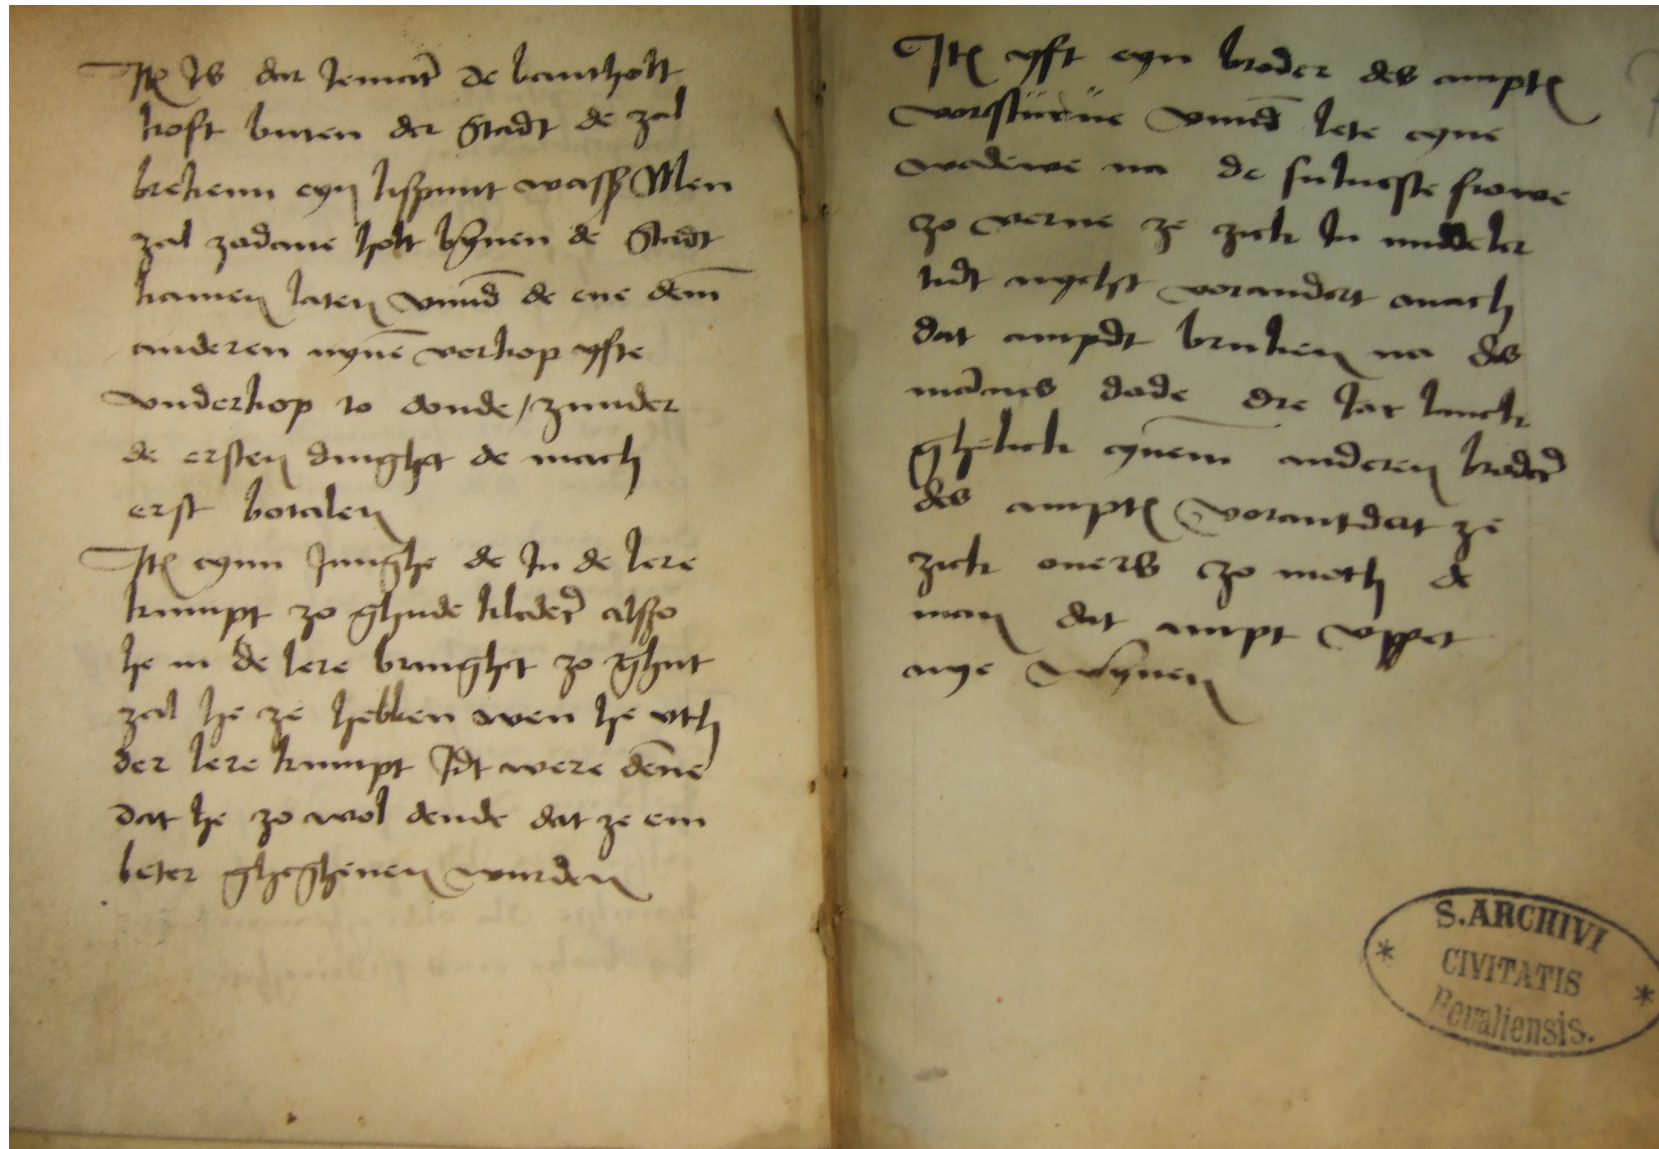 Jtem Js dar Jemant de bantholt
koft buten der Stadt de zal
brekenn eyn lispunt wass Men
zal zodane holt bynnen de Stadt
kamen laten vnnd de ene dem
anderen nynen vorkop yfte
vnderkop to donde / zunder
de ersten dinghet de mach
erst botalen
Jtem eynn Junghe de Jn de lere
kumpt zo ghude kleder alszo
he in de lere bringhet zo ghut
zal he ze hebben wen he vth
der lere kumpt Jdt were denne
dat he zo wol dende dat ze em
beter ghegheuen wurden
Jtem yft eyn broder des amptes
vorstürue vnnd lete eyne
wedewe na de suluefte frowe
zo verne ze zick Jn middeler
tidt nycht vorandert mach
dat ampdt bruken na des
mannes dode dre Jar lanck
ghelick eynem anderen broder
des amptes vorantdert ze
zick ouers zo moth de
man dat ampt vppet
nye wynen
S. ARCHIVI
CIVITATIS
Revaliensis.